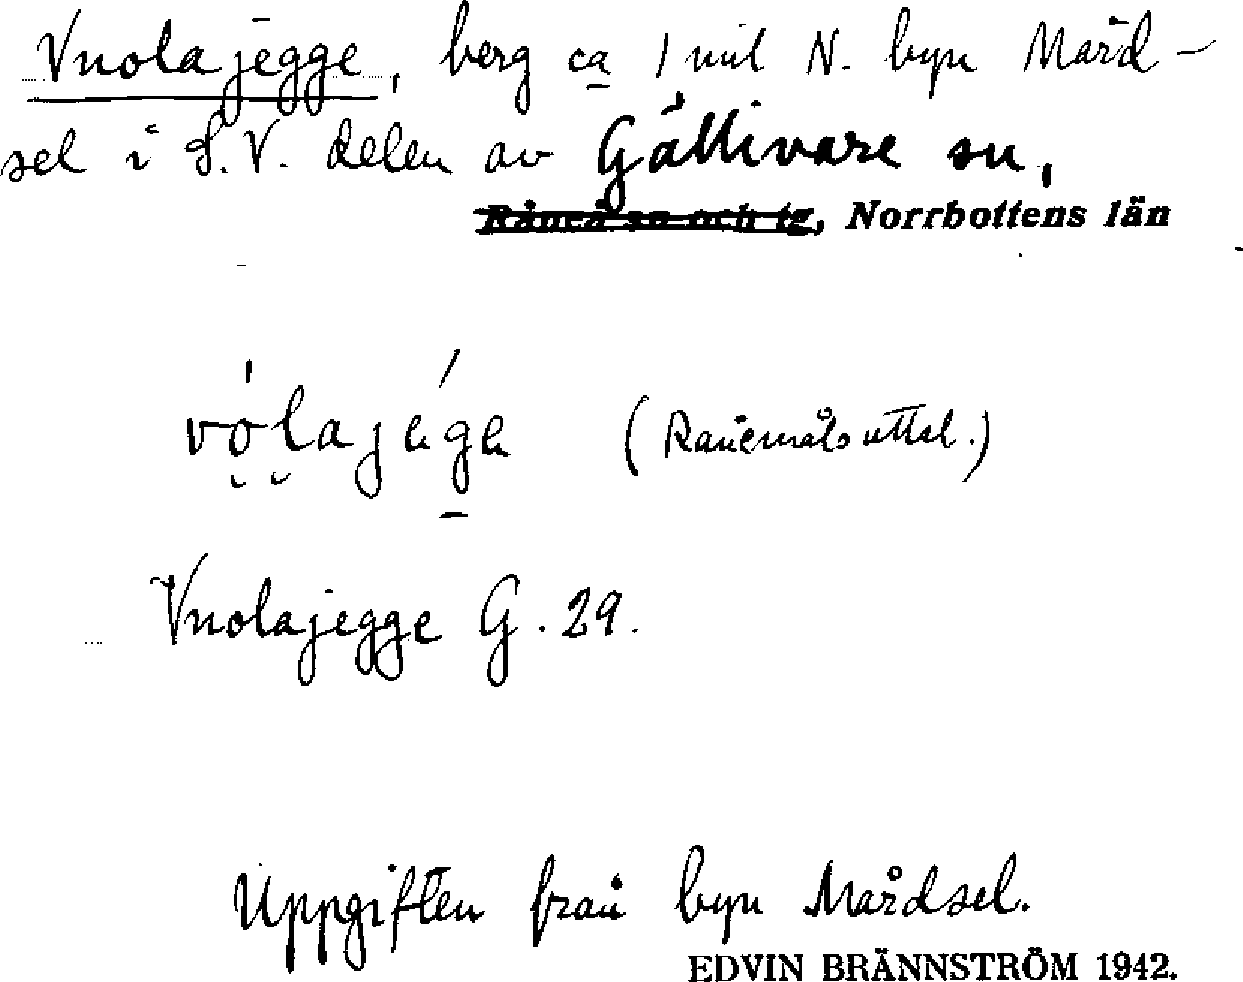 Vuolajegge, berg ca 1 mil N. byn Mård-
sel i S.V. delen av Gällivare sn,
Råneå sn och tg, Norrbottens län
(Rånemåls uttal.)
Vuolajegge G. 29.
Uppgiften från byn Mårdsel.
EDVIN BRÄNNSTRÖM 1942.